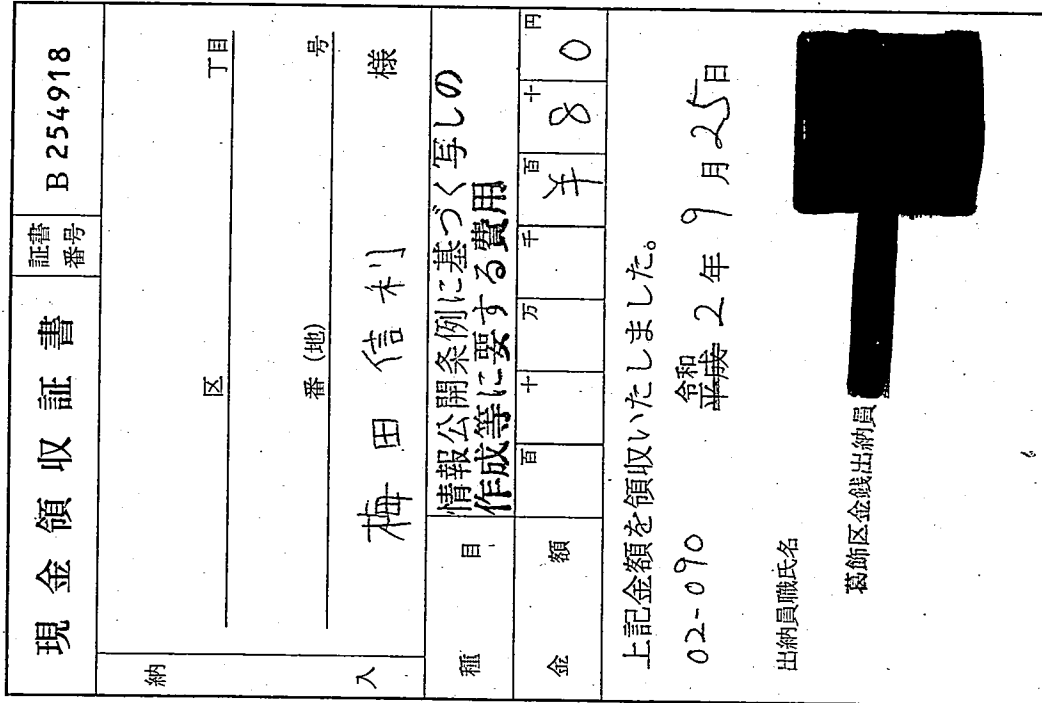 現金領収証書 証書番号 B 254918
納入
区 丁目
番(地) 号
梅田信利 様
種目 情報公開条例に基づく写しの
作成等に要する費用
金額 百 十 万 千 百 十 円
¥ 8 0
上記金額を領収いたしました。
02-090 令和 平成 2年 9月 25日
出納員職氏名
葛飾区金銭出納員